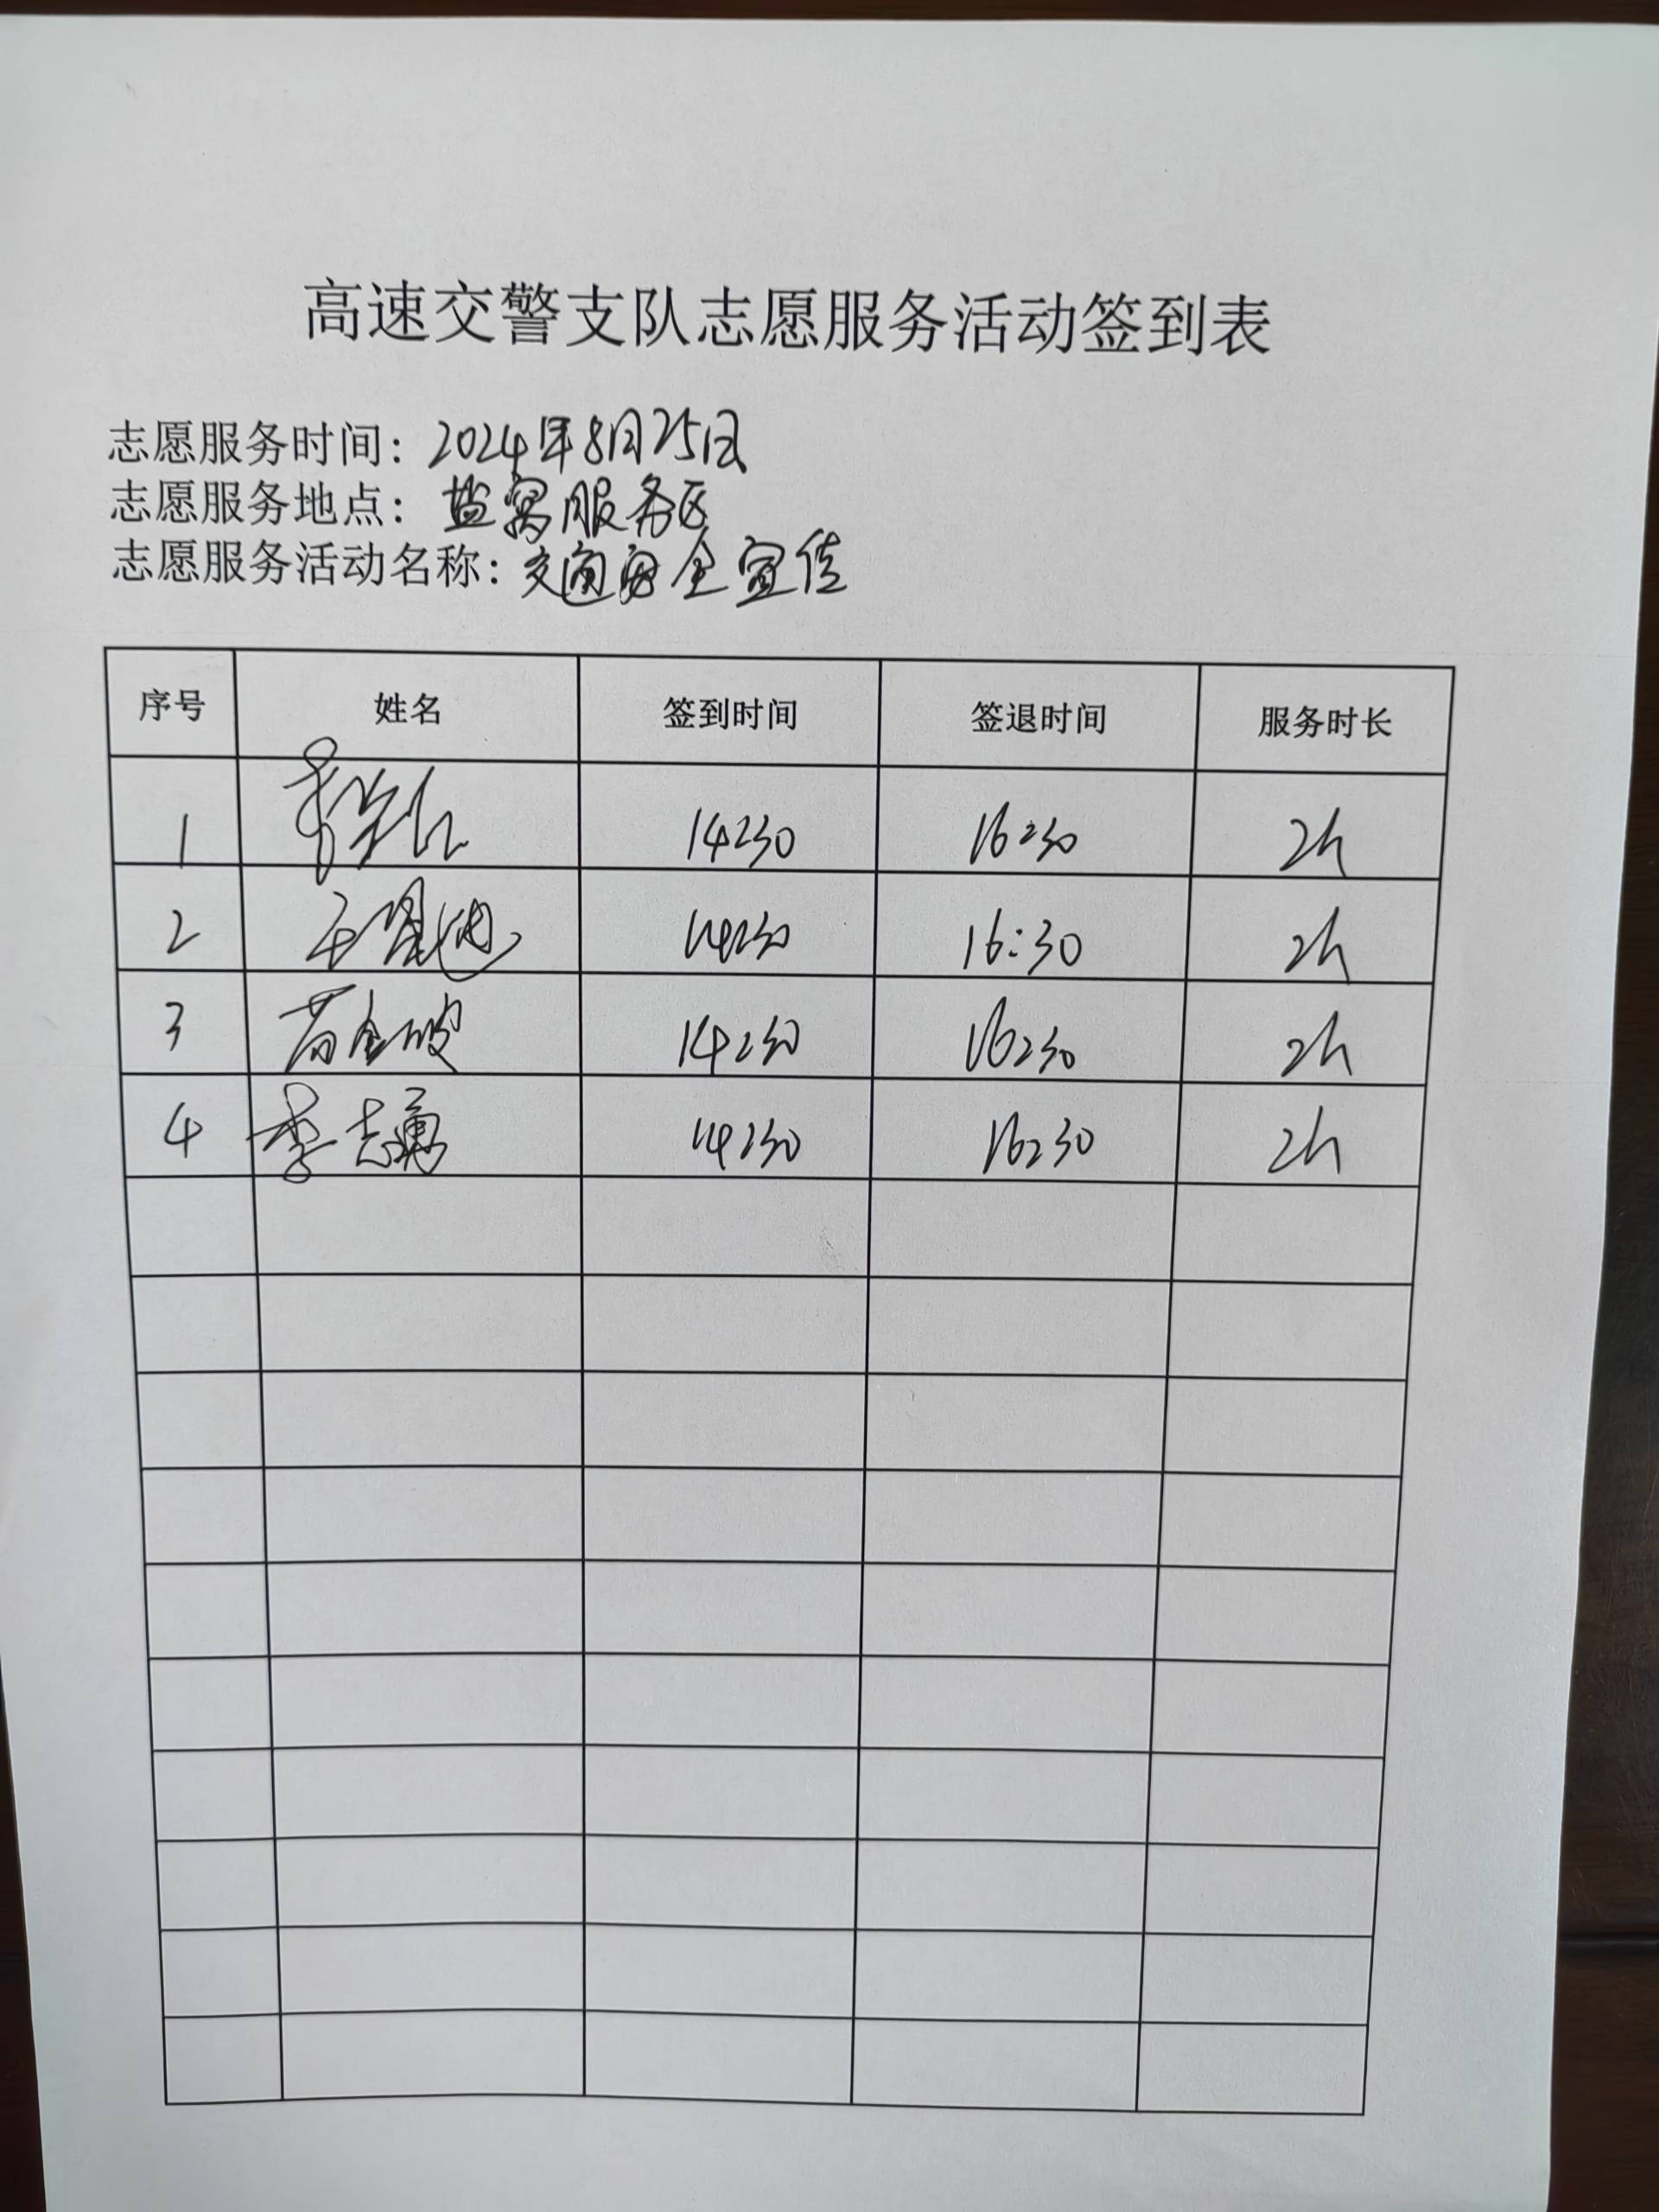 高速交警支队志愿服务活动签到表
志愿服务时间：2024年8月25日
志愿服务地点：盐窝服务区
志愿服务活动名称：交通安全宣传
序号 姓名 签到时间 签退时间 服务时长
1 14:30 16:30 2h
2 14:30 16:30 2h
3 14:30 16:30 2h
4 李志勇 14:30 16:30 2h